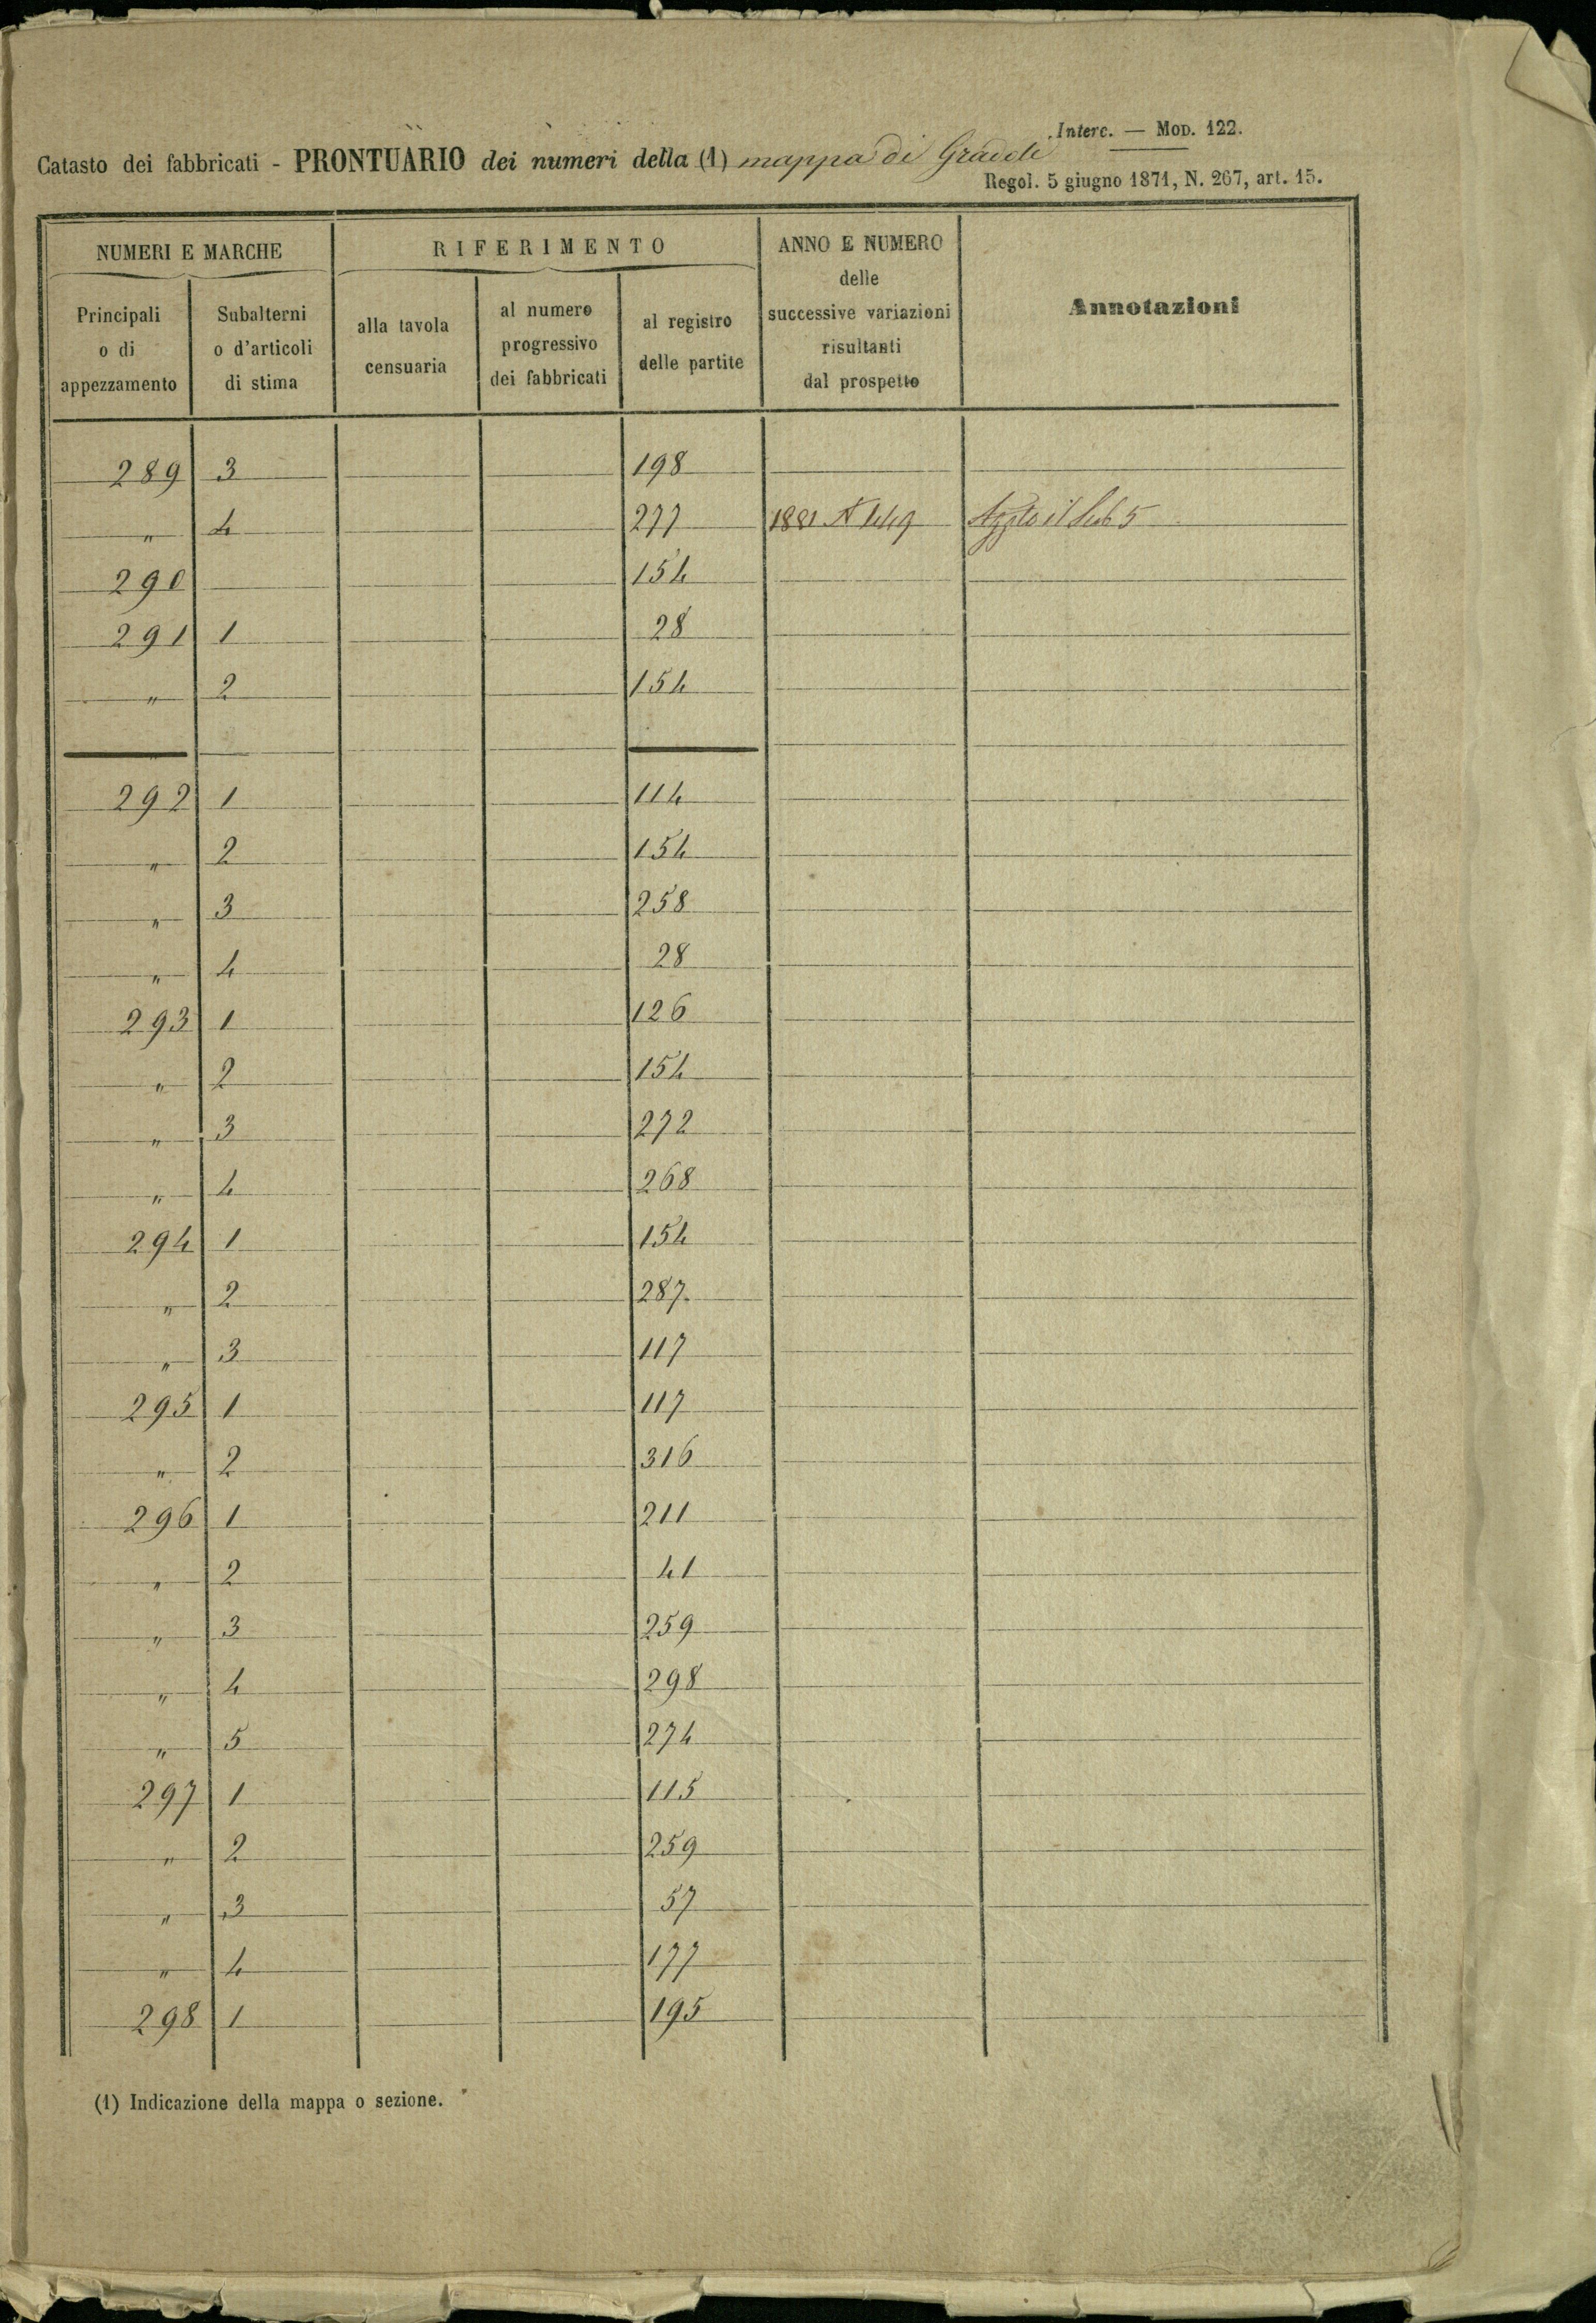 Interc. — Mod. 122.
Catasto dei fabbricati - PRONTUARIO dei numeri della (1) mappa di
Regol. 5 giugno 1871, N. 267, art. 15.
NUMERI E MARCHE RIFERIMENTO ANNO E NUMERO delle successive variazioni risultanti dal prospetto Annotazioni
Principali o di appezzamento Subalterni o d'articoli di stima alla tavola censuaria al numero progressivo dei fabbricati al registro delle partite
289 3 198
" 4 277 1881 N 449 il Sub 5
290 154
291 1 28
" 2 154
292 1 114
" 2 154
" 3 258
" 4 28
293 1 126
" 2 154
" 3 272
" 4 268
294 1 154
" 2 287
" 3 117
295 1 117
" 2 316
296 1 211
" 2 41
" 3 259
" 4 298
" 5 274
297 1 115
" 2 259
" 3 57
" 4 177
298 1 195
(1) Indicazione della mappa o sezione.